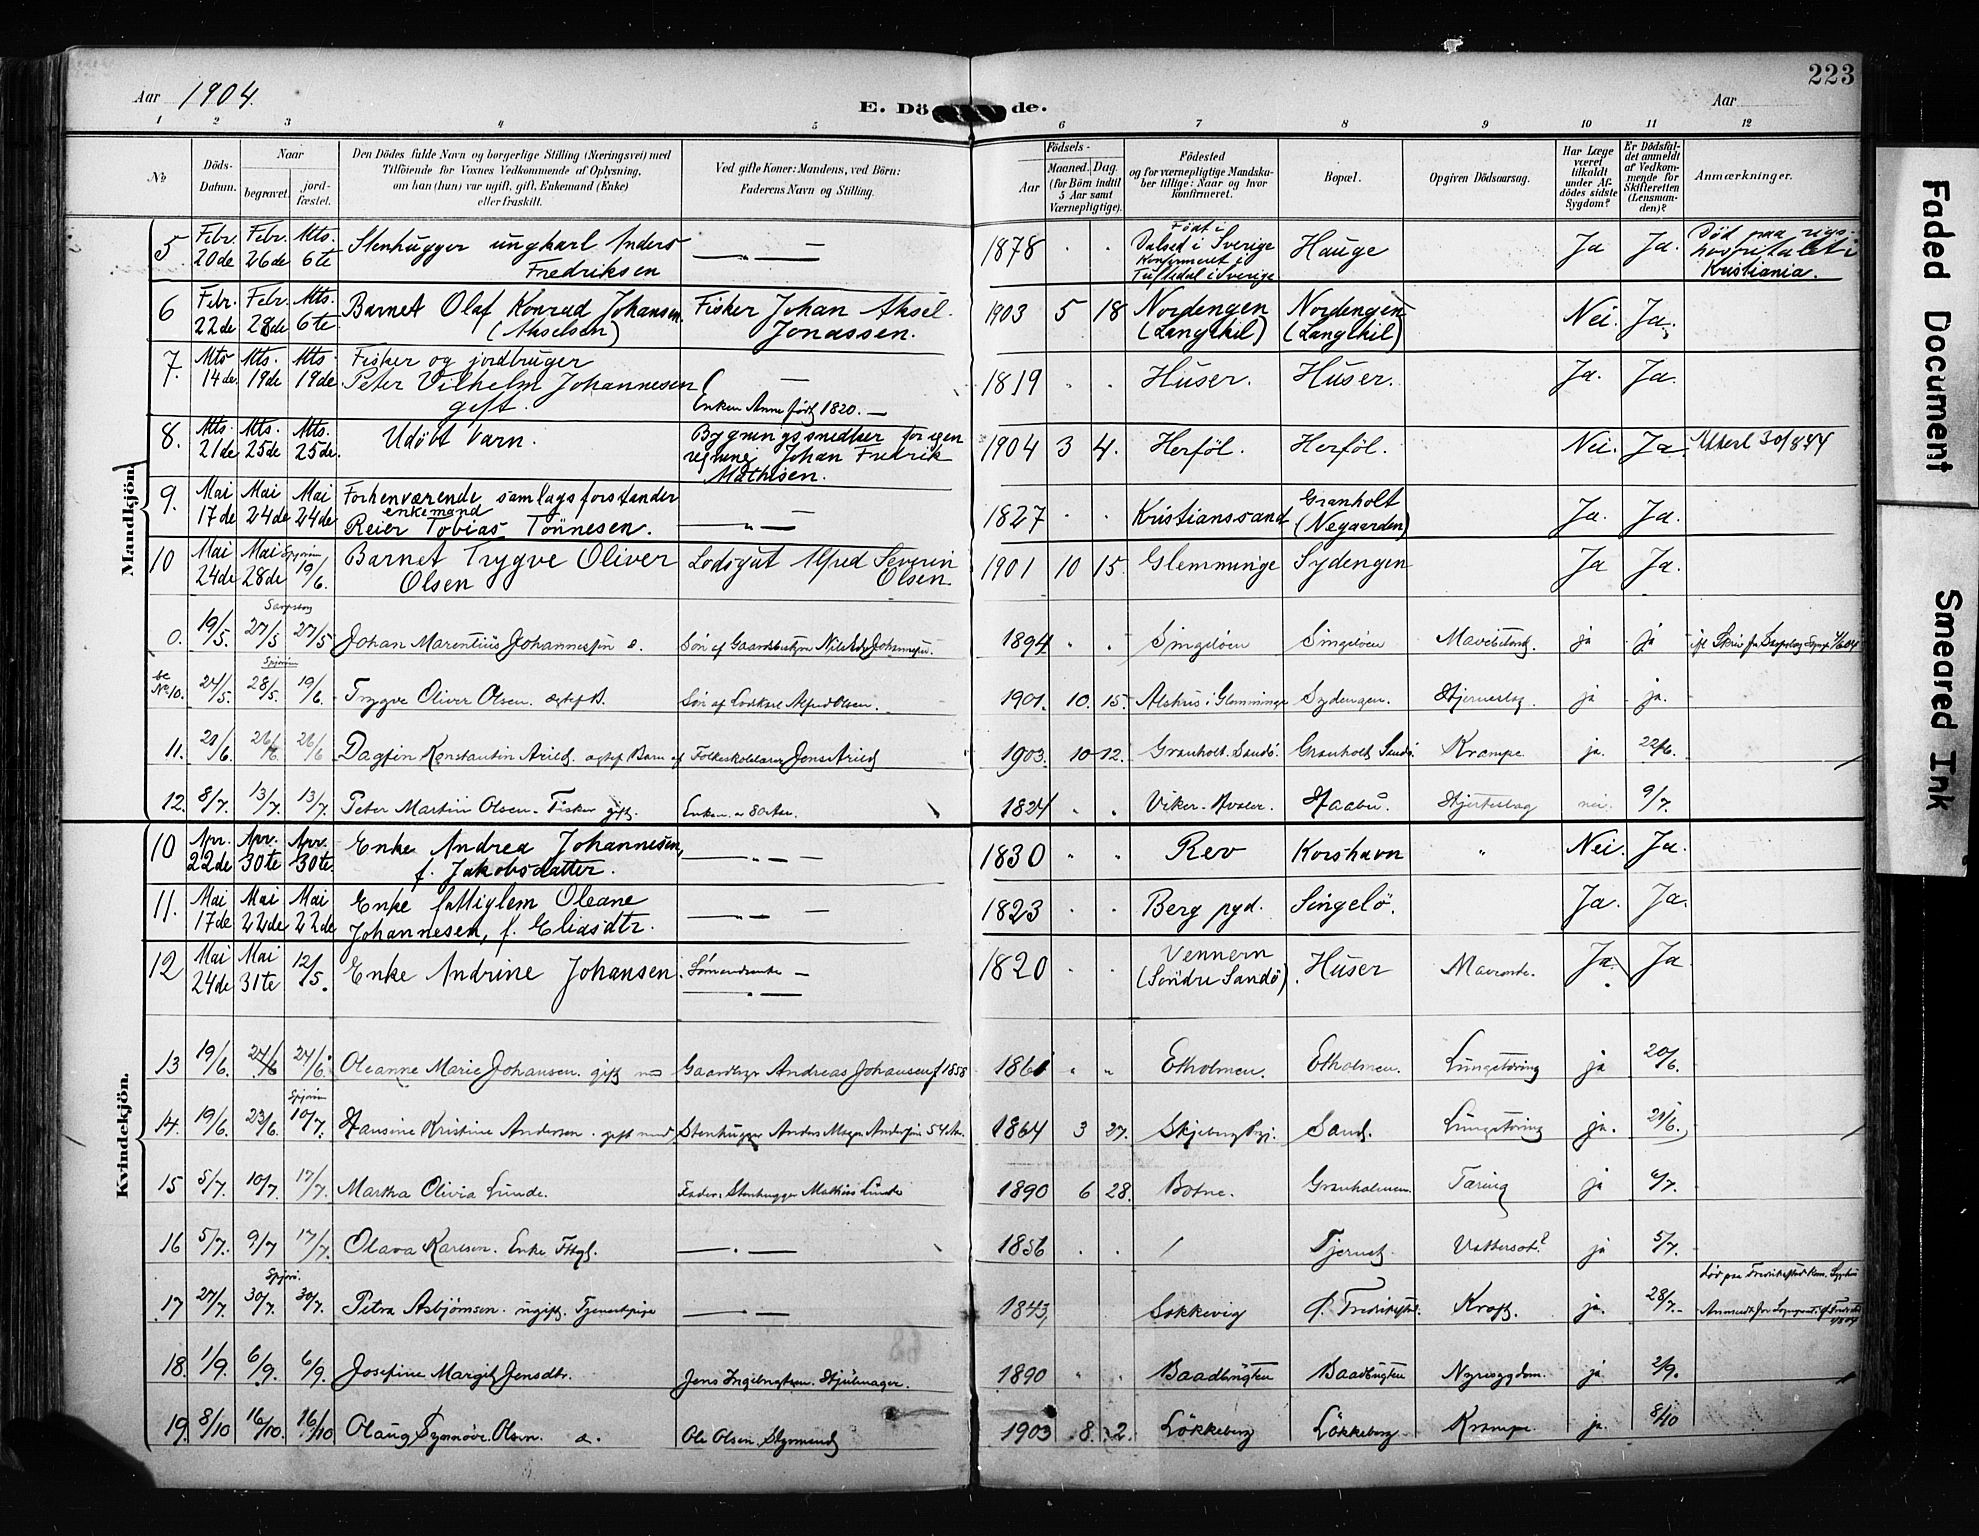 Aar 1904.
E. Dö de.
Aar
223
1 2 3 4 5 6 7 8 9 10 11 12
No
Döds-Datum.
Naar
begravet.
jord-fæstet.
Den Dödes fulde Navn og borgerlige Stilling (Næringsvei) med
Tilföiende for Voxnes Vedkommende af Oplysning,
om han (hun) var ugift, gift, Enkemand (Enke)
eller fraskilt.
Ved gifte Koner: Mandens, ved Börn:
Faderens Navn og Stilling.
Födsels-
Aar
Maaned. Dag.
(for Börn indtil
5 Aar samt
Værnepligtige).
Födested
og for værnepligtige Mandska-
ber tillige: Naar og hvor
konfirmeret.
Bopæl.
Opgiven Dödsaarsag.
Har Læge
været
tilkaldt
under Af-
dödes sidste
Sygdom?
Er Dödsfal-
det anmeldt
af Vedkom-
mende for
Skifteretten
(Lensman-
den)?
Anmærkninger.
Mandkjön.
5 Febr. 20de Febr. 26de Mts. 6te Stenhugger ungkarl Anders Fredriksen — " — 1878 " " Födt i Dalsed i Sverige Konfirmeret i Tuftedal i Sverige Hauge Ja Ja. Död paa rigs-hospitalet i Kristiania.
6 Febr. 22de Febr. 28de Mts. 6te Barnet Olaf Konrad Johansen (Akselsen) Fisker Johan Aksel Jonassen. 1903 5 18 Nordengen (Langekil) Nordengen (Langekil) Nei. Ja.
7. Mts. 14de Mts. 19de Mts. 19de Fisker og jordbruger Peter Vilhelm Johannesen gift. Enken Anne födt 1820. — 1819 " " Huser. Huser. Ja. Ja.
8. Mts. 21de Mts. 25de Mts. 25de. Udöbt barn. Bygningssnedker for egen regning Johan Fredrik Mathisen. 1904 3 4. Herföl. Herföl. Nei. Ja
9. Mai 17de Mai 24de Mai 24de Forhenværende samlagsforstander enkemand Reier Tobias Tönnesen. — " — 1827 " " Kristianssand Granholt (Negaarden) Ja. Ja.
10 Mai 24de Mai 28de 19/6. Barnet Trygve Oliver Olsen Lodsgut Alfred Severin Olsen. 1901 10 15. Glemminge Sydengen Ja Ja.
0. 19/5. 27/5 27/5 Sarpsborg Johan Marentius Johannessen Sön af 1894 " " Singelöen Singelöen ja ja
No 10. 24/5. 28/5. 19/6. Trygve Oliver Olsen. Sön af Lodskarl Alfred Olsen. 1901. 10. 15. i Glemminge Sydengen. Hjerneslag. ja ja.
11. 21/6. 26/6. 26/6 Dagfin Konstantin Arild. Barn af Folkeskolelærer Jens Arild 1903. 10 12. Granholt. Sandö. Granholt Sandö. Krampe ja. 22/6.
12. 8/7. 13/7. 13/7. Peter Martin Olsen. Fisker gift. Enken er 80 Aar. 1824 " " Viker. Hvaler. Haabu. Hjerteslag nei. 9/7.
Kvindekjön.
10 Apr. 22de Apr. 30te Apr. 30te. Enke Andrea Johannesen, f. Jakobsdatter. — " — 1830 " " Rev Korshavn " Nei. Ja.
11. Mai 17de Mai 22de Mai 22de Enke fattiglem Oleane Johannesen, f. Eliasdtr. — " — 1823 " " Berg pgd. Singelö. Ja. Ja.
12 Mai 24de Mai 31te 12/5. Enke Andrine Johansen. — " — 1820 " " Vennern (Söndre Sandö). Huser Ja Ja.
13 19/6. 24/6 24/6. Oleanne Marie Johansen. gift med Andreas Johansen f 1858 1861 " " Etholmen. Etholmen. Lungetæring ja 20/6.
14. 19/6. 23/6. 10/7. Hansine Kristine Andersen. gift med Stenhugger Anders 54 Aar. 1864 3 27. Sand. Lungetæring ja. 21/6.
15 5/7. 10/7. 17/7. Martha Olivia Lunde. Fader: Stenhugger Mathias Lunde 1890 6 28. Botne. Granholmen. Tæring ja 6/7.
16 5/7. 9/7 17/7. Olava Karlsen. Enke — " — 1856 " " Vattersot? ja 5/7.
17 27/7. 30/7. 30/7. Petra Asbjörnsen. ugift. Tjenestpige — " — 1843, Sokkevig Kræft. ja. 28/7.
18. 1/9. 6/9. 6/9. Josefine Margit Jensdtr. Jens Hjulmager. 1890 " " Baadbugten Baadbugten Nyresygdom. ja. 2/9.
19. 8/10 16/10. 16/10 Olaug Olsen. Ole Olsen. 1903 8. 2. Lökkeberg Lökkeberg Krampe. ja. 8/10
Faded Document
Smeared Ink